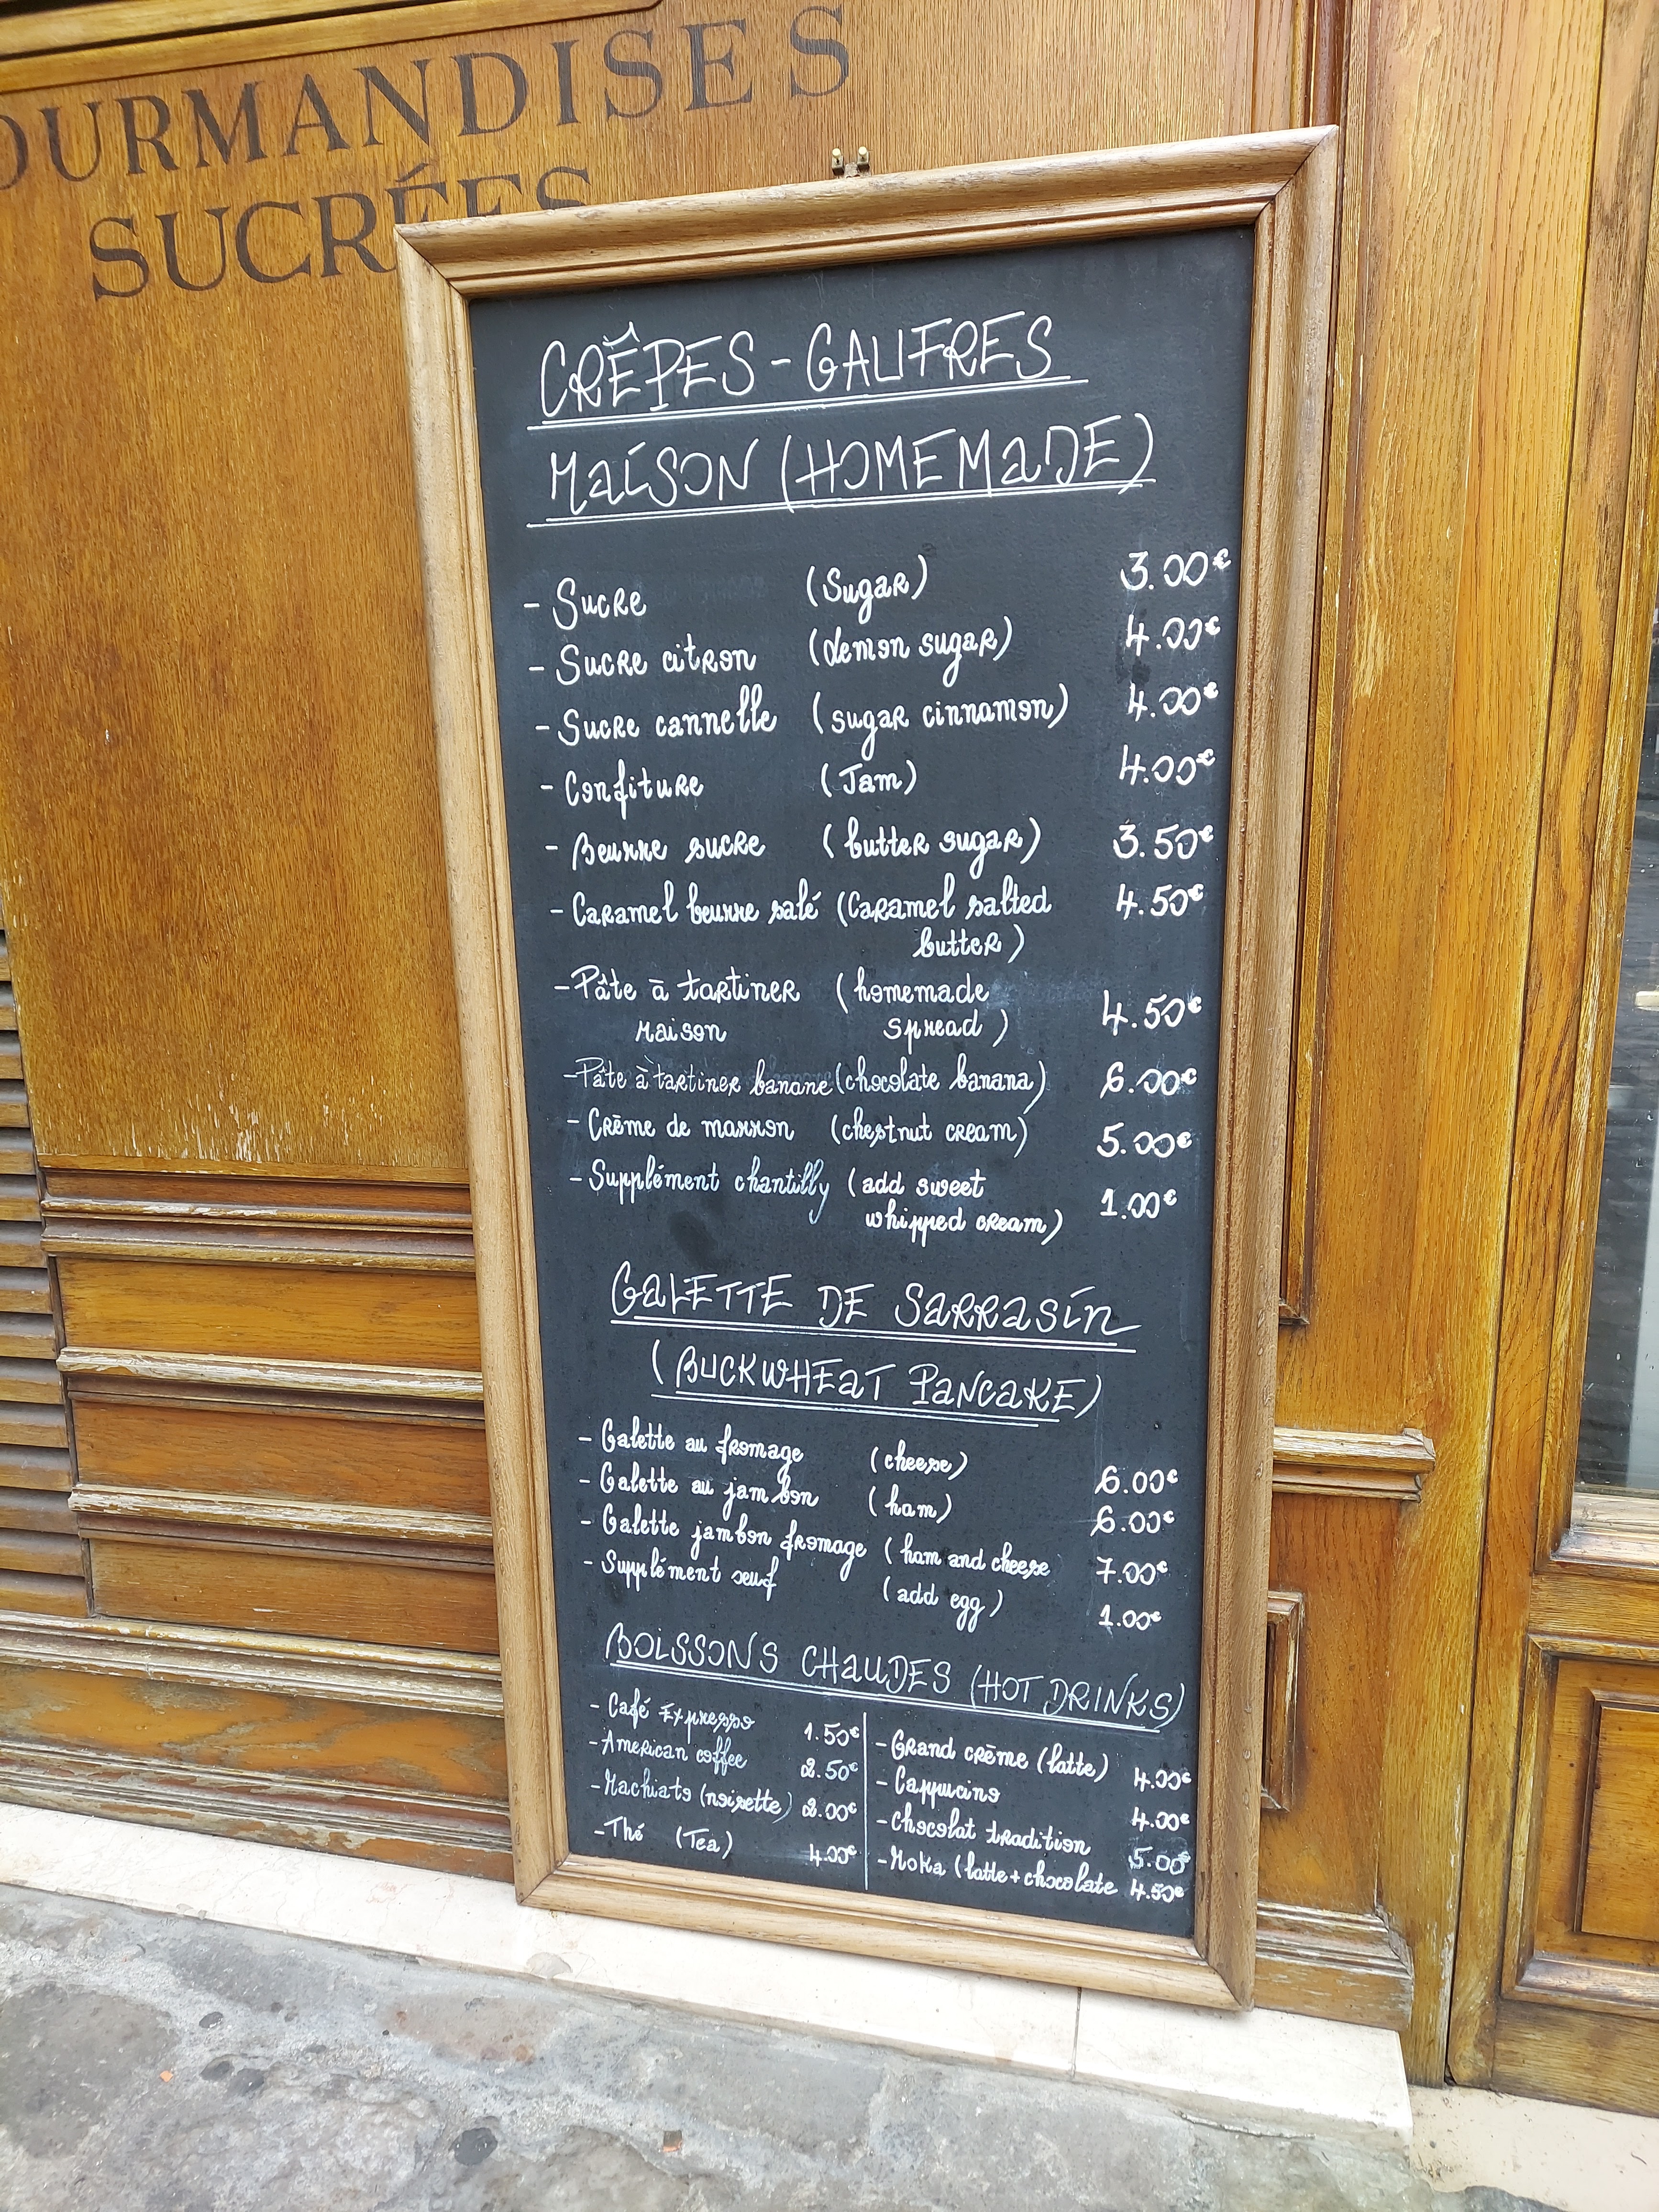 OURMANDISES
SUCRÉES
CRÊPES - GAUFRES
MAISON (HOMEMADE)
- Sucre (Sugar) 3.00€
- Sucre citron (lemon sugar) 4.00€
- Sucre cannelle (sugar cinnamon) 4.00€
- Confiture (Jam) 4.00€
- Beurre sucre (butter sugar) 3.50€
- Caramel beurre salé (Caramel salted 4.50€
butter)
- Pâte à tartiner (homemade
maison spread) 4.50€
- Pâte à tartiner banane (chocolate banana) 6.00€
- Crème de marron (chestnut cream) 5.00€
- Supplément chantilly (add sweet 1.00€
whipped cream)
GALETTE DE SARRASIN
(BUCKWHEAT PANCAKE)
- Galette au fromage (cheese) 6.00€
- Galette au jambon (ham) 6.00€
- Galette jambon fromage (ham and cheese 7.00€
- Supplément oeuf (add egg) 1.00€
BOISSONS CHAUDES (HOT DRINKS)
- Café Expresso 1.50€
- American coffee 2.50€
- Machiato (noisette) 2.00€
- Thé (Tea) 4.00€
- Grand crème (latte) 4.00€
- Cappucino 4.00€
- Chocolat tradition 5.00€
- Moka (latte + chocolate 4.50€